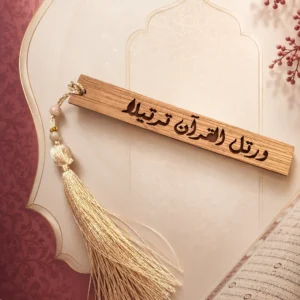 ورتل القرآن ترتيلا